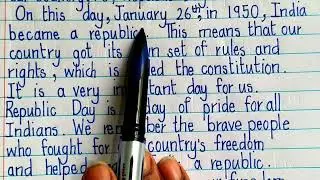 On this day, January 26th, in 1950, India
became a republic. This means that our
country got its set of rules and
rights, which is called the constitution.
It is a very important day for us.
Republic Day is day of pride for all
Indians. We remember the brave people
who fought for country's freedom
and helped a republic.